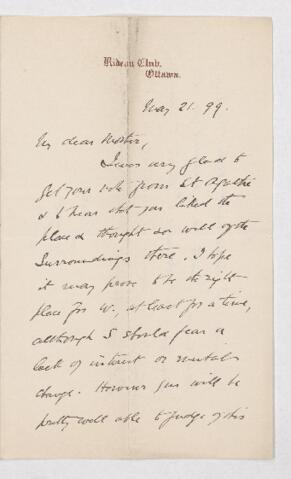 Rideau Club,
Ottawa.
May 21. 99.
My dear
I was very glad to
get your note from St Agathe
& to hear that you liked the
place & thought so well of the
surroundings there. I hope
it may prove to be the right
place for W., at least for a time,
although I should fear a
lack of interest or mental
change. However you will be
pretty well able to judge of this